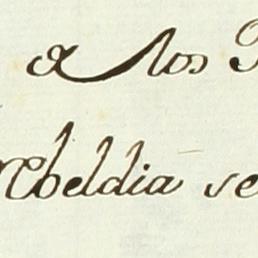 a los
Rebeldia se